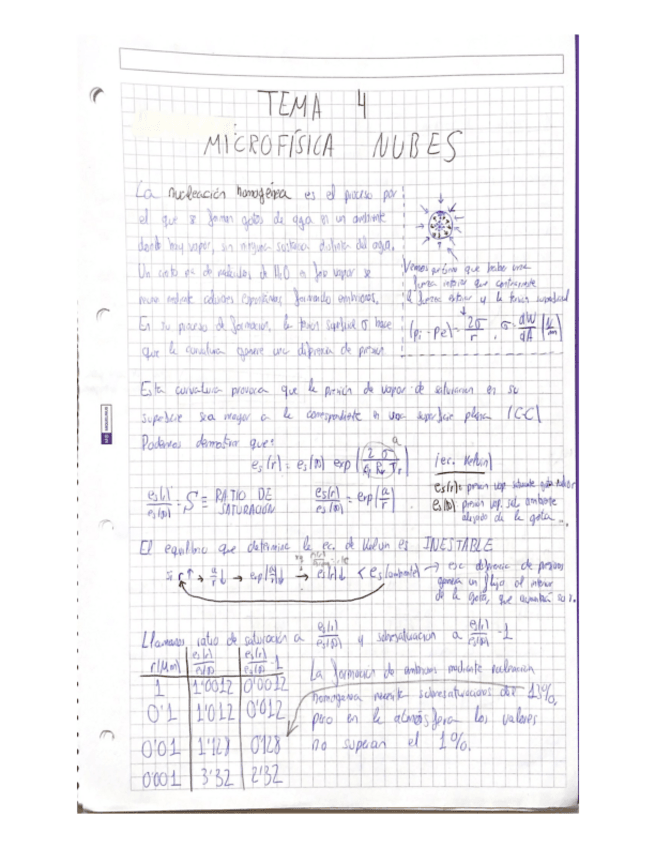 TEMA 4
MICROFÍSICA NUBES
La nucleación homogénea es el proceso por
el que se forman gotas de agua en un ambiente
donde hay vapor, sin ninguna sustancia distinta del agua.
Un cierto nº de moléculas de H2O en fase vapor se
mediante colisiones espontáneas formando embriones.
En su proceso de formación, la tensión superficial σ hace
que la curvatura genere una diferencia de presión
Vemos que debe una
fuerza interior que contrarreste
la fuerza exterior y la tensión superficial
(pi - pe) = 2σ/r , σ = dW/dA (N/m)
Esta curvatura provoca que la presión de vapor de saturación en su
superficie sea mayor a la correspondiente en una superficie plana (C-C)
Podemos demostrar que:
a
es(r) = es(∞) exp(2σ/ Rv T r) (ec. Kelvin)
es(r)/es(∞) = S ≡ RATIO DE SATURACIÓN es(r)/es(∞) = exp(a/r)
es(r) = presión vap. saturante gota
es(∞) presión vap. ambiente
alejado de la gota...
El equilibrio que determina la ec. de Kelvin es INESTABLE
Si r↑ → a/r↓ → exp(a/r)↓ → es(r)↓ < es(ambiente) → esa diferencia de presiones
genera un flujo al interior
de la gota, que aumentará su r.
Llamamos ratio de saturación a es(r)/es(∞) y sobresaturación a es(r)/es(∞) - 1
r(μm) es(r)/es(∞) es(r)/es(∞) - 1
1 1'0012 0'0012
0'1 1'012 0'012
0'01 1'128 0'128
0'001 3'32 2'32
La formación de embriones mediante nucleación
homogénea necesita sobresaturaciones del 13%,
pero en la atmósfera los valores
no superan el 1%.